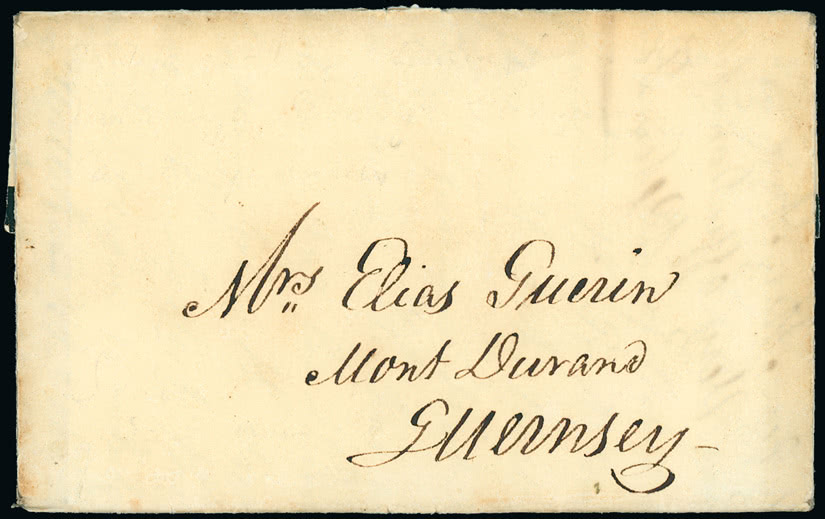 Mrs Elias Guerin
Mont Durand
Guernsey